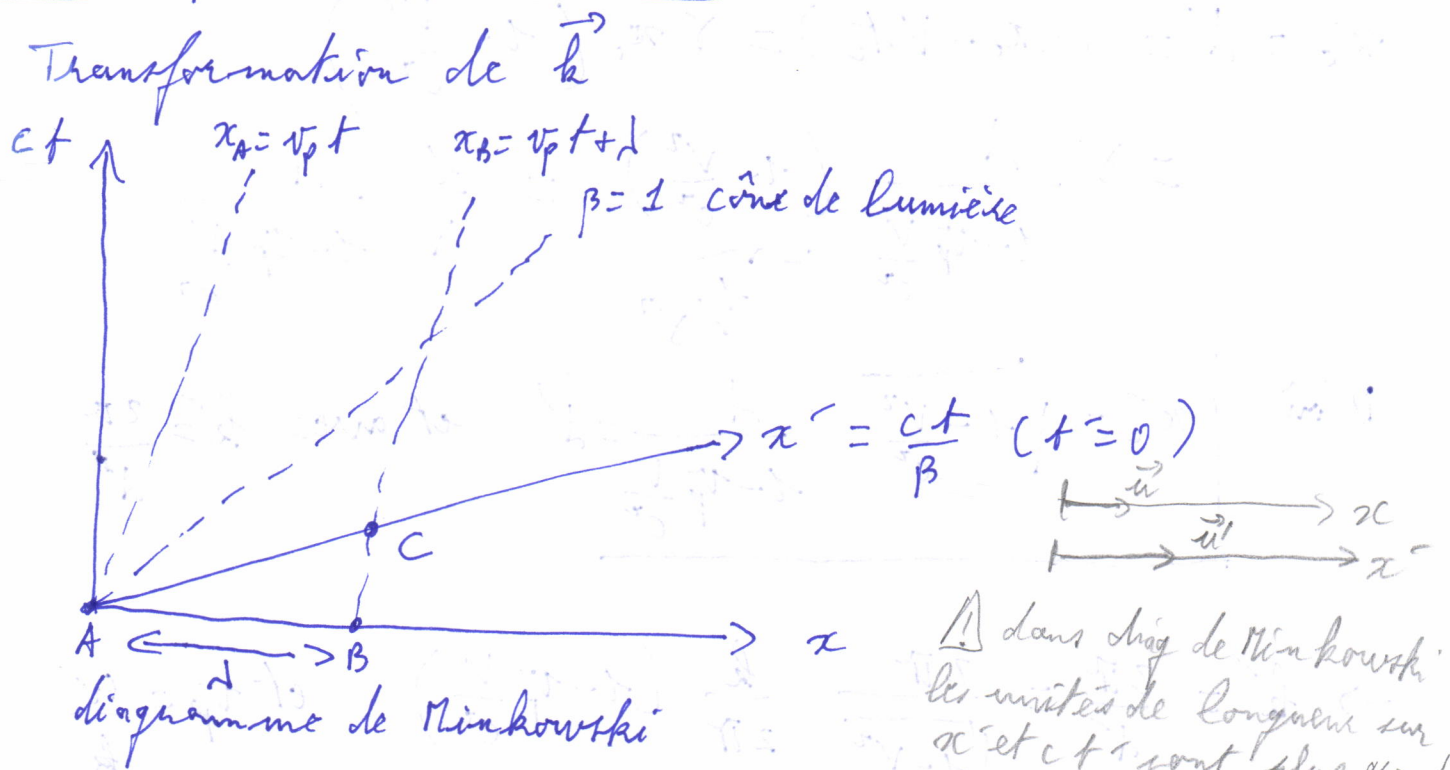 Transformation de k⃗
ct
x_A = v_p t
x_B = v_p t + λ
β = 1 cône de lumière
x' = ct/β (t' = 0)
C
u⃗
x
u⃗'
x'
A
B
x
λ
diagramme de Minkowski
⚠ dans diag de Minkowski
les unités de longueur sur
x' et ct' sont